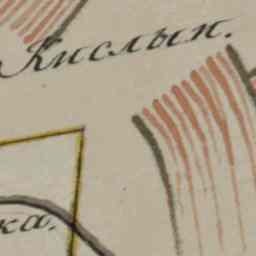 Кислын.
ка.